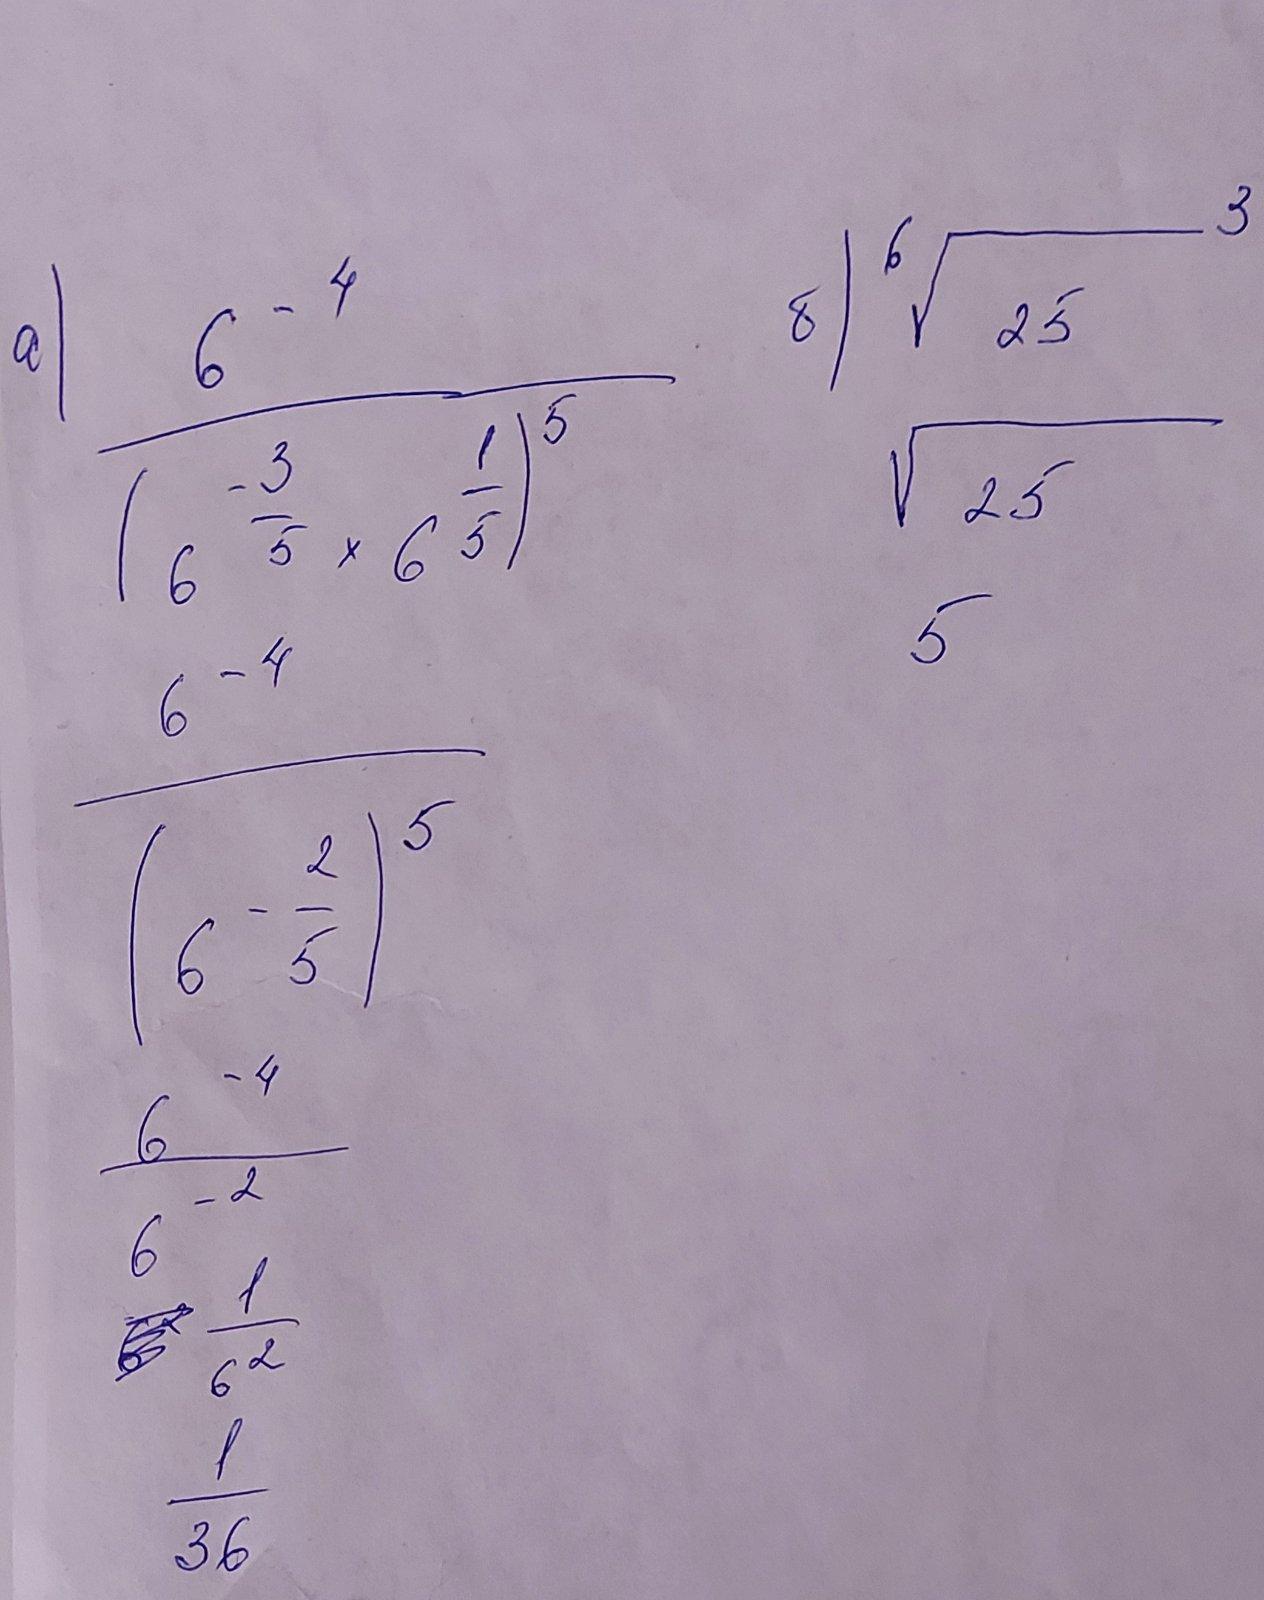 а) 6^-4
(6^-3/5 × 6^1/5)^5
6^-4
(6^-2/5)^5
6^-4
6^-2
1/6^2
1/36
б) ⁶√25³
√25
5